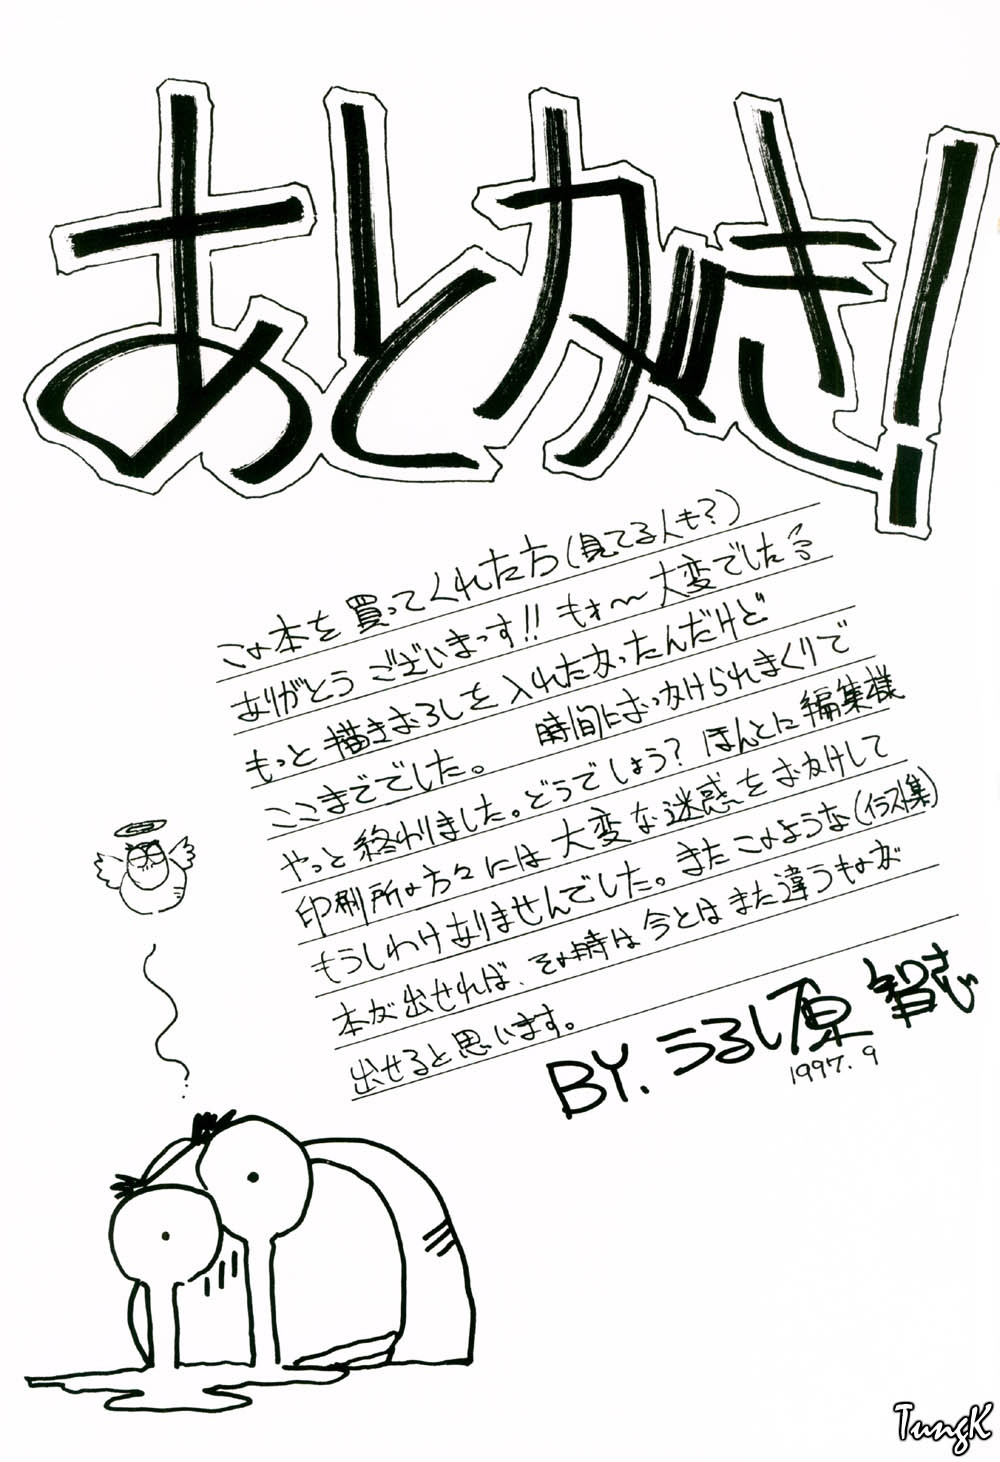 あとがき!
この本を買ってくれた方(見てる人も?)
ありがとうございまっす!!もォ〜大変でした
もっと描きおろしを入れたかったんだけど
ここまででした。時間においかけられまくりで
やっと終わりました。どうでしょう?ほんとに編集様
印刷所の方々には大変な迷惑をおかけして
もうしわけありませんでした。またこのような(イラスト集)
本が出せれば、その時は今とはまた違うものが
出せると思います。
BY.うるし原智志
さとし
1997.9
TungK